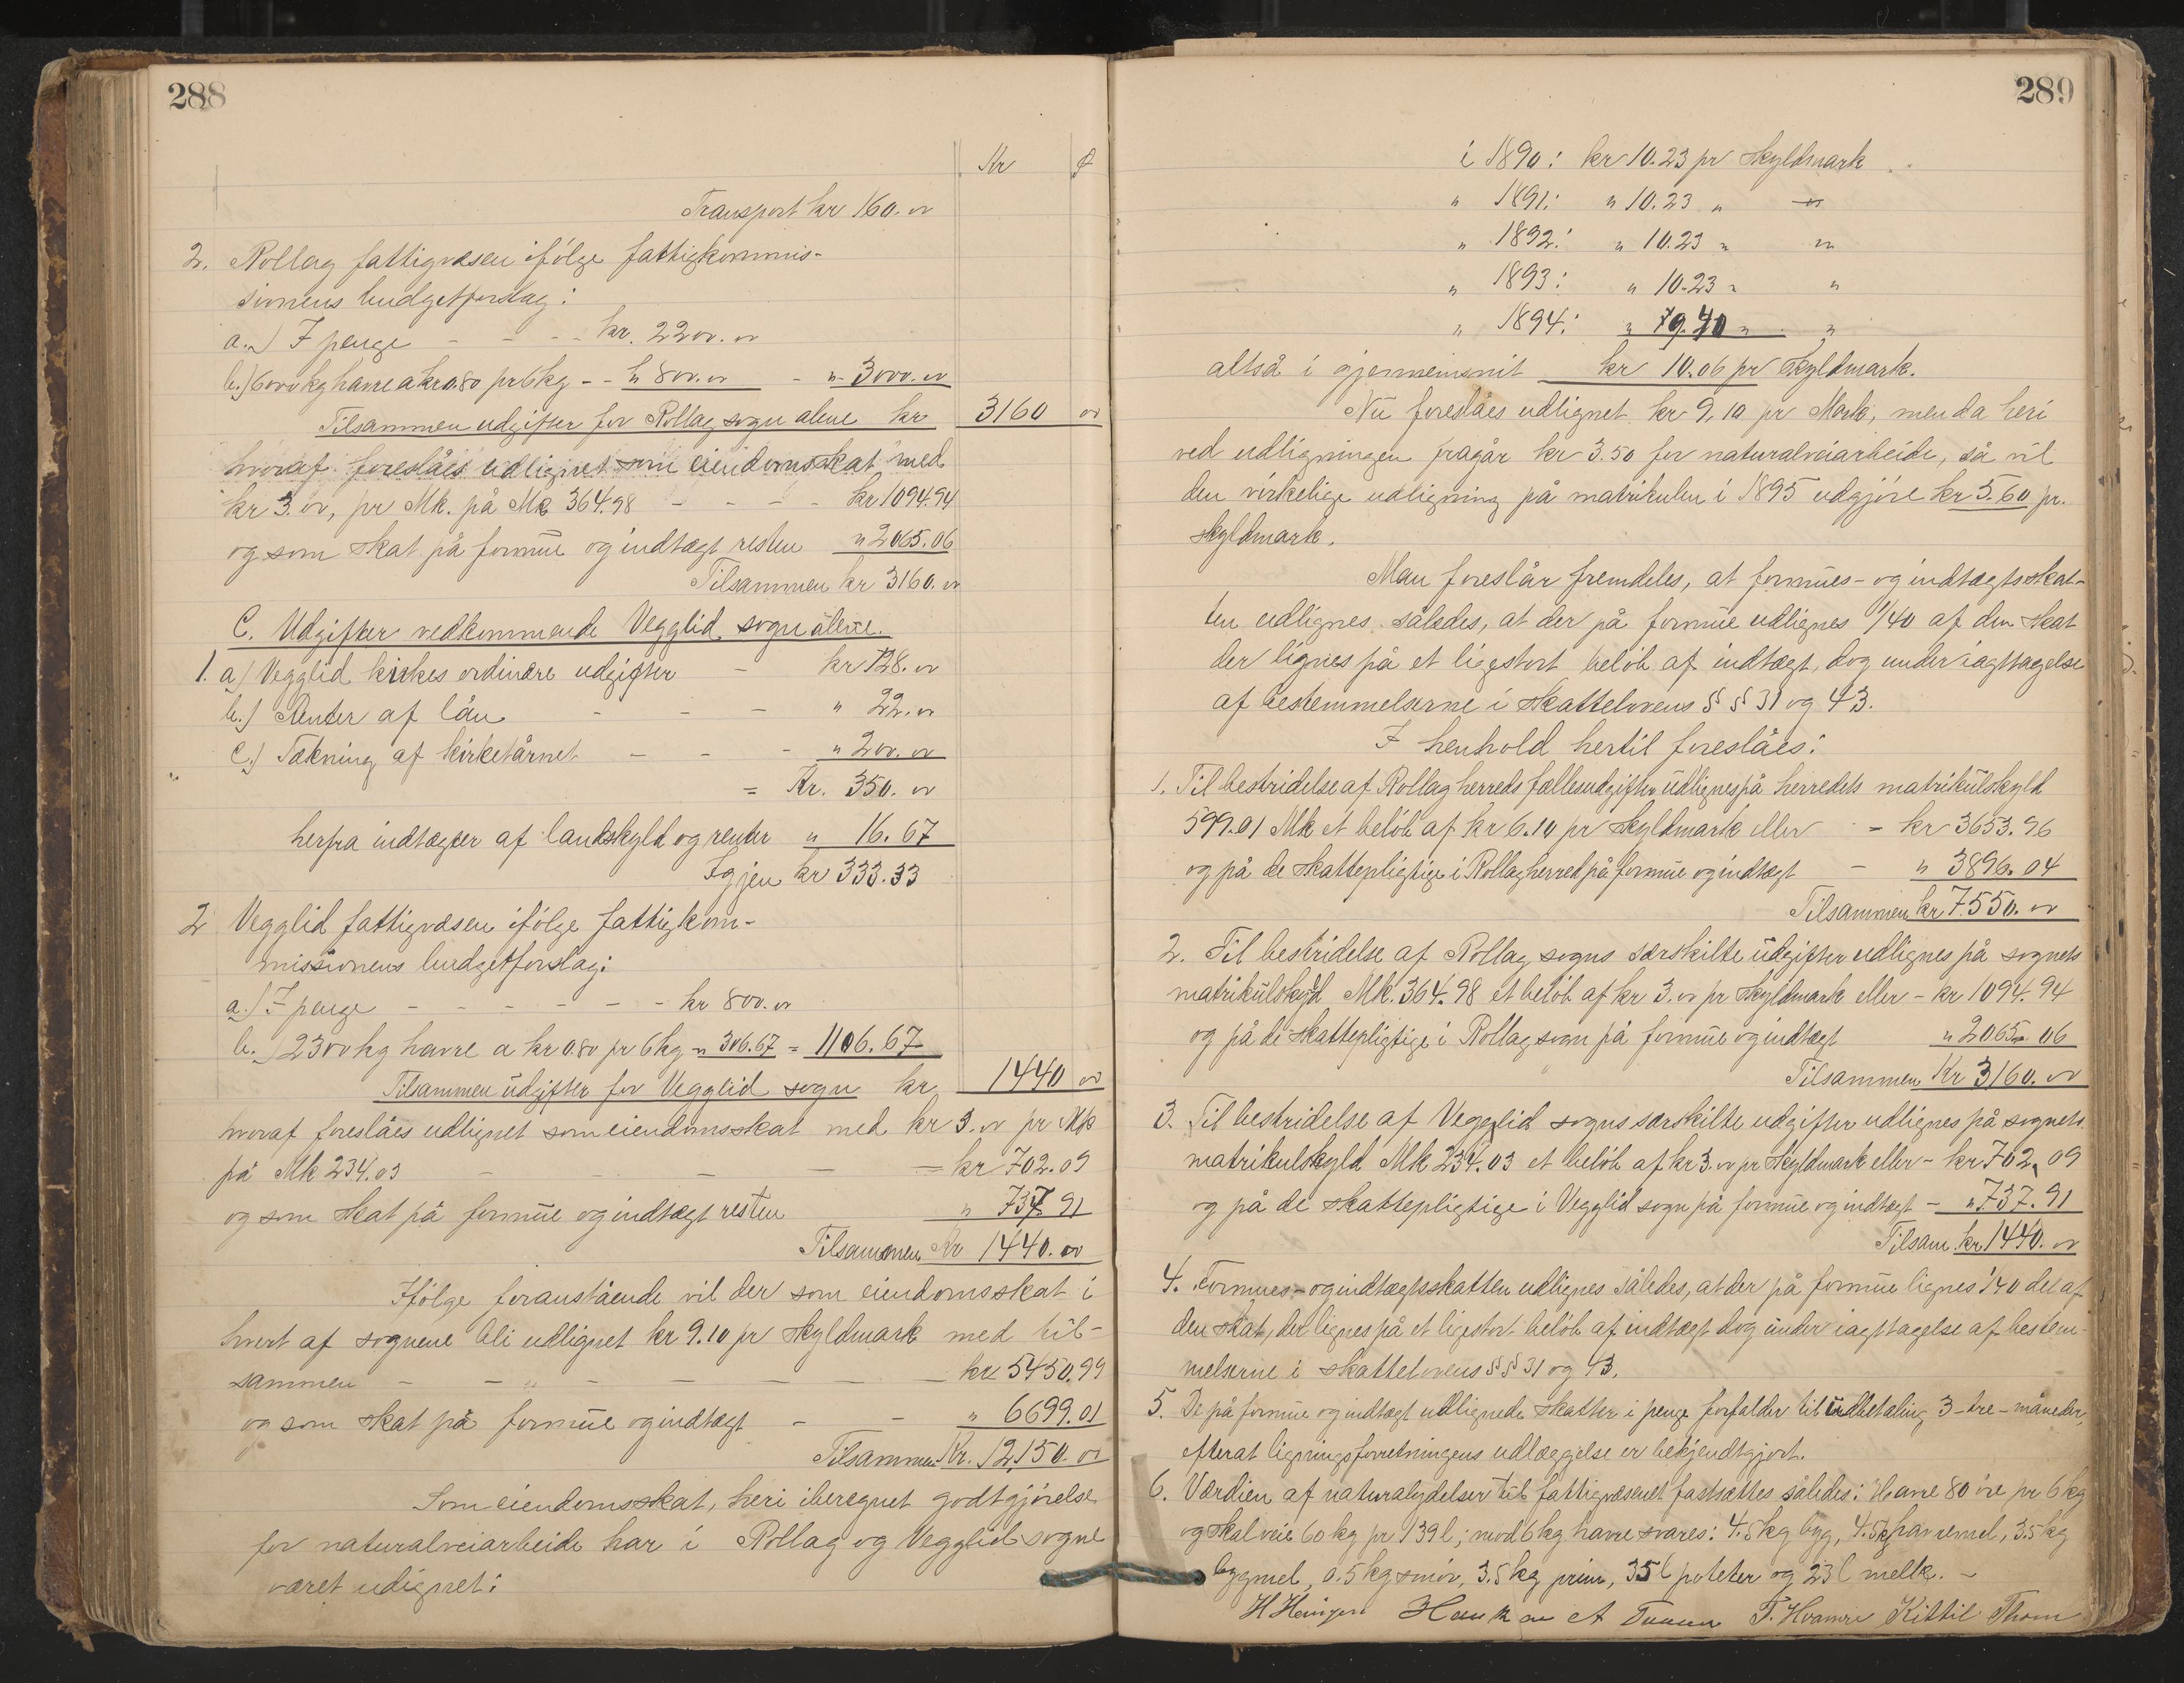 288
Kr ø
Transport kr 160.oo
2. Rollag fattigvæsen ifölge fattigkommis-
sionens budgetforslag:
a.) I penge - - - kr. 2200.oo
b.) 6000 kg havre a kr 0.80 pr 6 kg - - " 800.oo - " 3000.oo
Tilsammen udgifter for Rollag sogn alene kr 3160 oo
hvoraf foreslåes udlignet som eiendomsskat med
kr 3.oo, pr Mk. på Mk 364.98 - - - - kr 1094.94
og som skat på formue og indtægt resten " 2065.06
Tilsammen kr 3160.oo
C. Udgifter vedkommende Vegglid sogn alene.
1. a) Vegglid kirkes ordinære udgifter - kr 128.oo
b.) Renter af lån - - - " 22.oo
c.) Tækning af kirketårnet - - - " 200.oo
= Kr. 350.oo
herfra indtægter af landskyld og renter " 16.67
Igjen kr 333.33
2 Vegglid fattigvæsen ifölge fattigkom-
missionens budgetforslag:
a.) I penge - - - - - - kr 800.oo
b.) 2300 kg havre a kr 0.80 pr 6 kg " 306.67 = 1106.67
Tilsammen udgifter for Vegglid sogn kr 1440 oo
hvoraf foreslåes udlignet som eiendomsskat med kr 3.oo pr Mk
på Mk 234.03 - - - - - kr 702.09
og som skat på formue og indtægt resten " 737.91
Tilsammen Kr 1440.oo
Ifölge foranstående vil der som eiendomsskat i
hvert af sognene bli udlignet kr 9.10 pr Skyldmark med til-
sammen - - - - - - - - kr 5450.99
og som skat på formue og indtægt - - " 6699.01
Tilsammen Kr. 12,150.oo
Som eiendomsskat, heri iberegnet godtgjörelse
for naturalveiarbeide har i Rollag og Vegglid sogne
været udignet:
289
i 1890: kr 10.23 pr Skyldmark
" 1891: " 10.23 " "
" 1892: " 10.23 " "
" 1893: " 10.23 " "
" 1894: " 9.40 " "
altså i gjennemsnit kr 10.06 pr Skyldmark.
Nu foreslåes udlignet kr 9,10 pr Mark, men da heri
ved udligningen fragår kr 3.50 for naturalveiarbeide, så vil
den virkelige udligning på matrikulen i 1895 udgjöre kr 5.60 pr.
Skyldmark.
Man foreslår fremdeles, at formues- og indtægtsskat-
ten udlignes således, at der på formue udlignes 1/40 af den skat
der lignes på et ligestort belöb af indtægt, dog under iagttagelse
af bestemmelserne i Skattelovens § § 31 og 43.
I henhold hertil foreslåes:
1. Til bestridelse af Rollag herreds fællesudgifter udlignes på herredets matrikulskyld
599.01 Mk et belöb af kr 6.10 pr Skyldmark eller - kr 3653.96
og på de skattepligtige i Rollag herred på formue og indtægt - " 3896.04
Tilsammen kr 7550.oo
2. Til bestridelse af Rollag sogns særskilte udgifter udlignes på sognets
matrikulskyld Mk. 364.98 et belöb af kr 3.oo pr Skyldmark eller - kr 1094.94
og på de skattepligtige i Rollag sogn på formue og indtægt " 2065.06
Tilsammen Kr 3160.oo
3. Til bestridelse af Vegglid sogns særskilte udgifter udlignes på sognets
matrikulskyld Mk 234.03 et belöb af kr 3.oo pr Skyldmark eller - kr 702.09
og på de skattepligtige i Vegglid sogn på formue og indtægt - " 737.91
Tilsam. kr 1440.oo
4. Formues- og indtægtsskatten udlignes således, at der på formue lignes 1/40 del af
den skat, der lignes på et ligestort belöb af indtægt dog under iagttagelse af bestem-
melserne i skattelovens § § 31 og 43.
5. De på formue og indtægt udlignede skatter i penge forfalder til udbetaling 3-tre-måneder,
efterat ligningsforretningens udlæggelse er bekjendtgjort.
6. Værdien af naturalydelser til fattigvæsenet fastsættes således: Havre 80 öre pr 6 kg
og skal veie 60 kg pr 139 l; mod 6 kg havre svares: 4.5 kg byg, 4.5 kg havremel, 3.5 kg
bygmel, 0.5 kg smör, 3.5 kg prim, 35 l poteter og 23 l melk. -
T. Hvamre Kittil